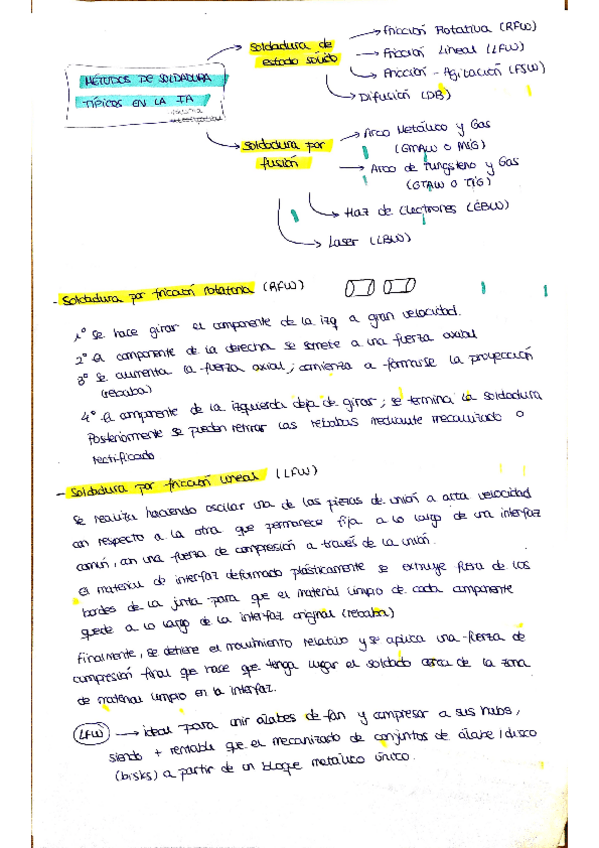 MÉTODOS DE SOLDADURA
TÍPICOS EN LA IA
Soldadura de
estado sólido
Fricción Rotativa (RFW)
Fricción Lineal (LFW)
Fricción - Agitación (FSW)
Difusión (DB)
Soldadura por
fusión
Arco Metálico y Gas
(GMAW o MIG)
Arco de Tungsteno y Gas
(GTAW o TIG)
Haz de Electrones (EBW)
Laser (LBW)
- Soldadura por fricción rotatoria (RFW)
1º Se hace girar el componente de la izq a gran velocidad.
2º El componente de la derecha se somete a una fuerza axial
3º Se aumenta la fuerza axial; comienza a formarse la proyección
(rebaba)
4º El componente de la izquierda deja de girar; se termina la soldadura
Posteriormente se pueden retirar las rebabas mediante mecanizado o
rectificado
- Soldadura por fricción lineal (LFW)
Se realiza haciendo oscilar una de las piezas de unión a alta velocidad
con respecto a la otra que permanece fija a lo largo de una interfaz
común, con una fuerza de compresión a través de la unión.
El material de interfaz deformado plásticamente se extruye fuera de los
bordes de la junta para que el material limpio de cada componente
quede a lo largo de la interfaz original (rebaba)
Finalmente, se detiene el movimiento relativo y se aplica una fuerza de
compresión final que hace que tenga lugar el soldado cerca de la zona
de material limpio en la interfaz.
LFW → ideal para unir álabes de fan y compresor a sus hubs,
siendo + rentable que el mecanizado de conjuntos de álabe/disco
(bisks) a partir de un bloque metálico único.